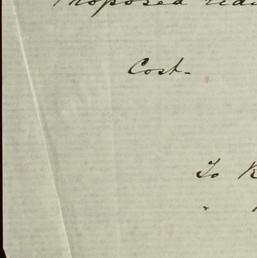 Proposed
Cost-
To
"